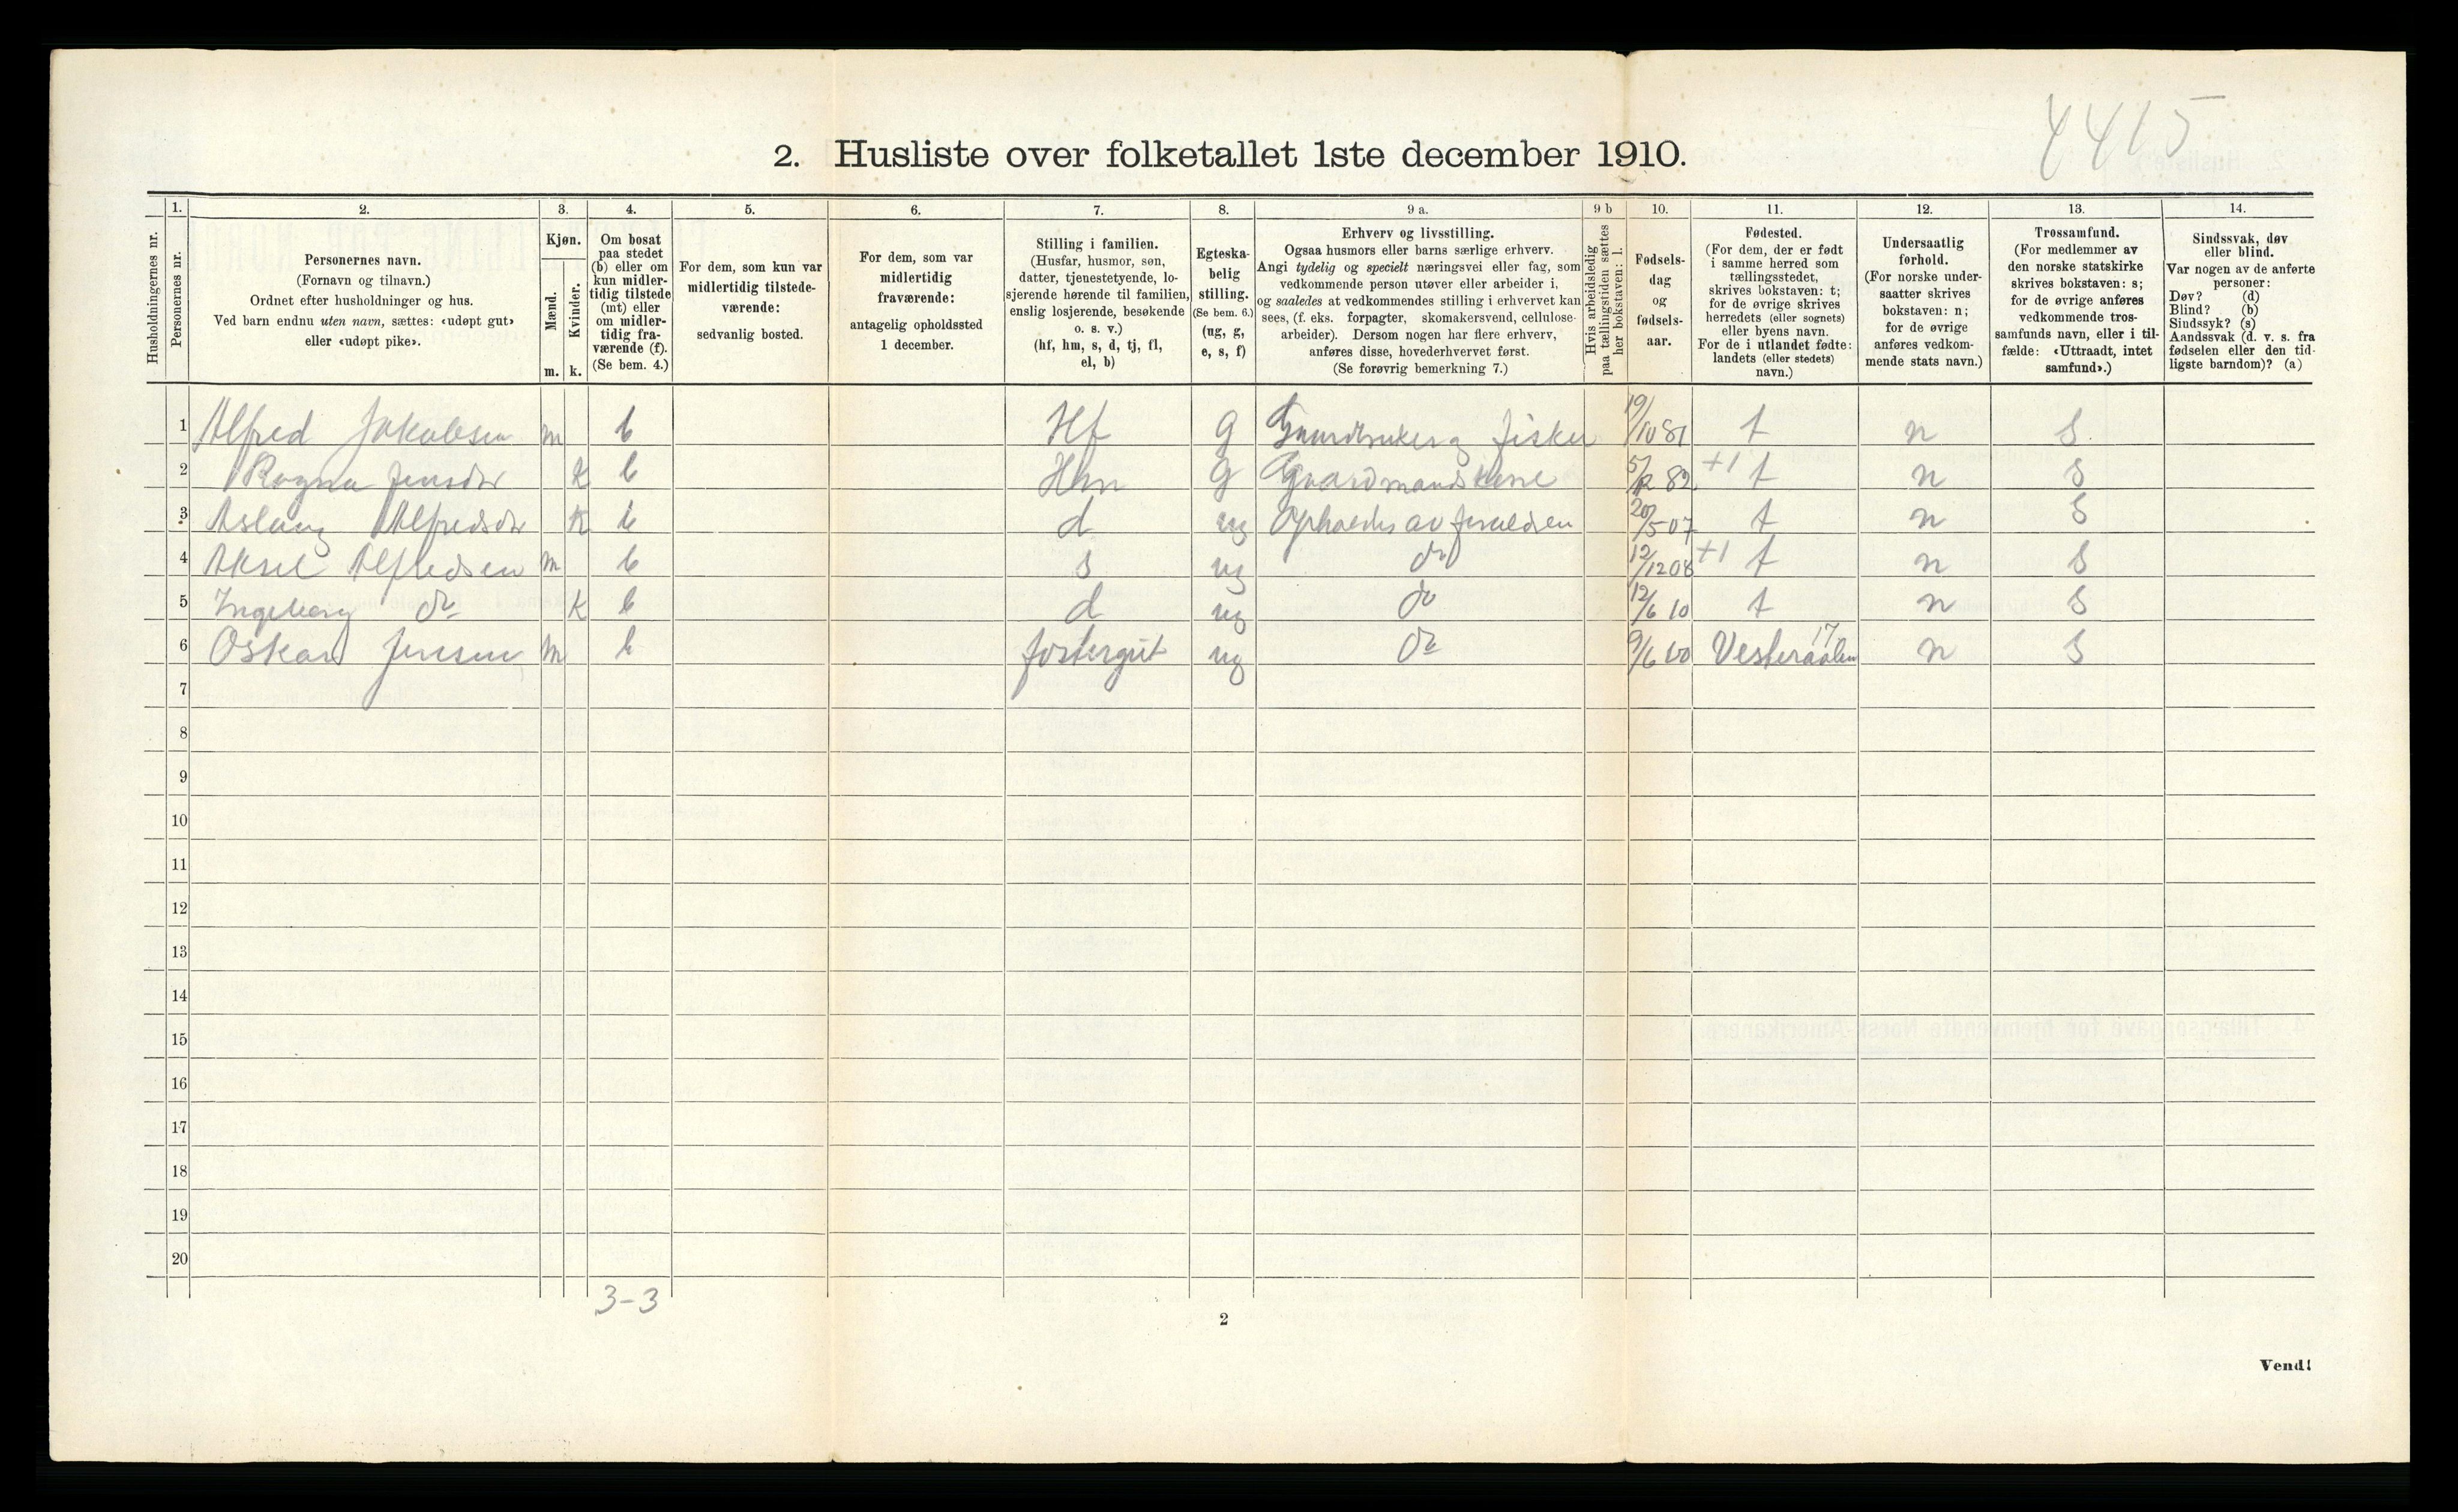 4415
2. Husliste over folketallet 1ste december 1910.
Husholdningernes nr.
1. Personernes nr.
2. Personernes navn. (Fornavn og tilnavn.) Ordnet efter husholdninger og hus. Ved barn endnu uten navn, sættes: «udøpt gut» eller «udøpt pike».
3. Kjøn. Mænd. m. Kvinder. k.
4. Om bosat paa stedet (b) eller om kun midlertidig tilstede (mt) eller om midlertidig fraværende (f). (Se bem. 4.)
5. For dem, som kun var midlertidig tilstedeværende: sedvanlig bosted.
6. For dem, som var midlertidig fraværende: antagelig opholdssted 1 december.
7. Stilling i familien. (Husfar, husmor, søn, datter, tjenestetyende, losjerende hørende til familien, enslig losjerende, besøkende o. s. v.) (hf, hm, s, d, tj, fl, el, b)
8. Egteskabelig stilling. (Se bem. 6.) (ug, g, e, s, f)
9 a. Erhverv og livsstilling. Ogsaa husmors eller barns særlige erhverv. Angi tydelig og specielt næringsvei eller fag, som vedkommende person utøver eller arbeider i, og saaledes at vedkommendes stilling i erhvervet kan sees, (f. eks. forpagter, skomakersvend, cellulosearbeider). Dersom nogen har flere erhverv, anføres disse, hovederhvervet først. (Se forøvrig bemerkning 7.)
9 b Hvis arbeidsledig paa tællingstiden sættes her bokstaven: l.
10. Fødselsdag og fødselsaar.
11. Fødested. (For dem, der er født i samme herred som tællingsstedet, skrives bokstaven: t; for de øvrige skrives herredets (eller sognets) eller byens navn. For de i utlandet fødte: landets (eller stedets) navn.)
12. Undersaatlig forhold. (For norske undersaatter skrives bokstaven: n; for de øvrige anføres vedkommende stats navn.)
13. Trossamfund. (For medlemmer av den norske statskirke skrives bokstaven: s; for de øvrige anføres vedkommende trossamfunds navn, eller i tilfælde: «Uttraadt, intet samfund».)
14. Sindssvak, døv eller blind. Var nogen av de anførte personer: Døv? (d) Blind? (b) Sindssyk? (s) Aandssvak (d. v. s. fra fødselen eller den tidligste barndom)? (a)
1 Alfred Jakobsen m b Hf g Gaardbruker og fisker 19/10 81 t n S
2 Ragna Jensdr K b Hm g Gaardmandskone 5/12 89 +1 t n S
3 Aslaug Alfredsdr K b d ug Opholdes av foreldren 20/5 07 t n S
4 Aksel Alfredsen m b s ug do 12/12 08 +1 t n S
5 Ingeborg do K b d ug do 12/6 10 t n S
6 Oskar Jensen m b fostergut ug do 9/6 00 Vesteraalen 17 n S
7
8
9
10
11
12
13
14
15
16
17
18
19
20
3-3
2
Vend!